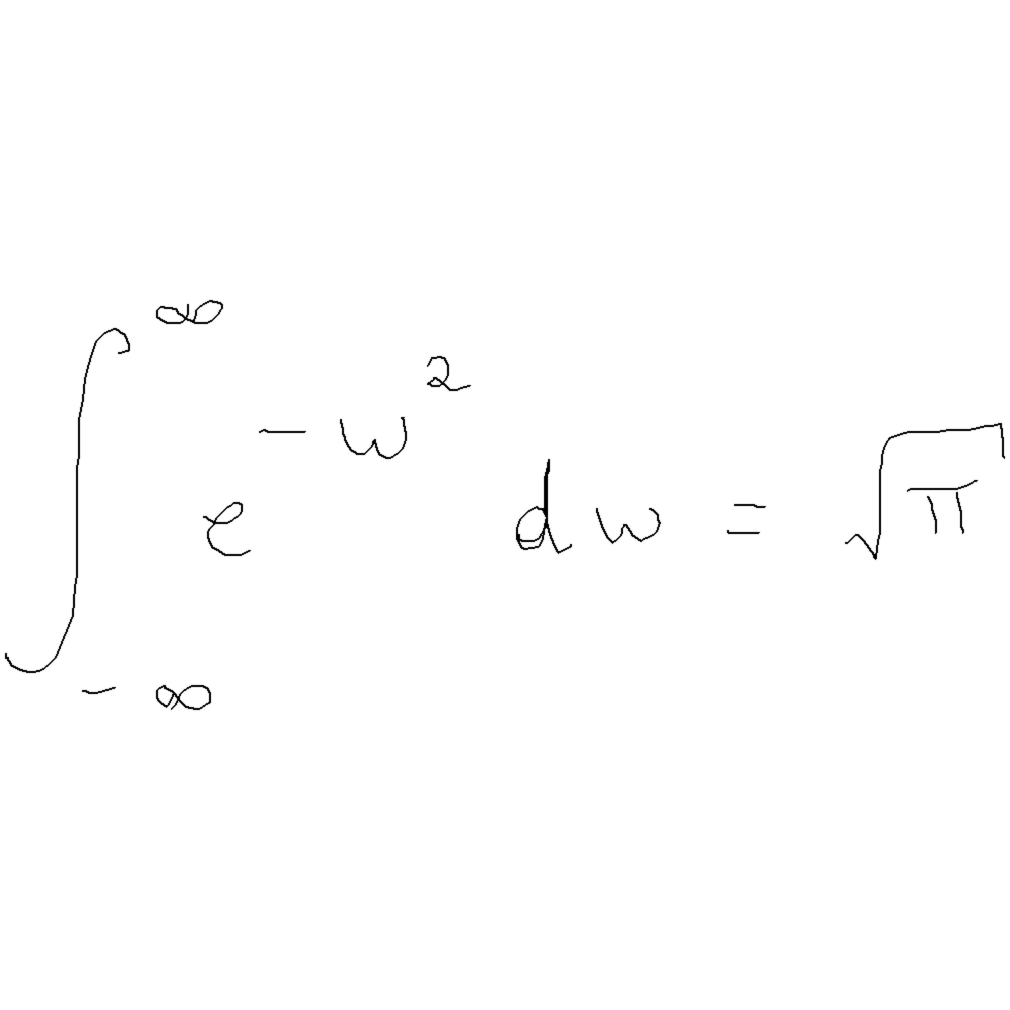 \int_{-\infty}^{\infty} e^{-w^2} dw = \sqrt{\pi}